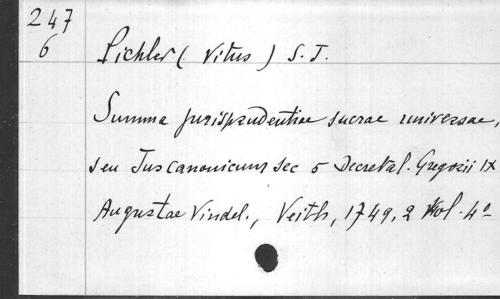 247
6
Pichler ( Vitus ) S. J.
Summa jurisprudentiae sacrae universae,
seu Jus canonicum sec 5 Decretal. Gregorii IX
Augustae Vindel., Veith, 1749, 2 Vol. 4º